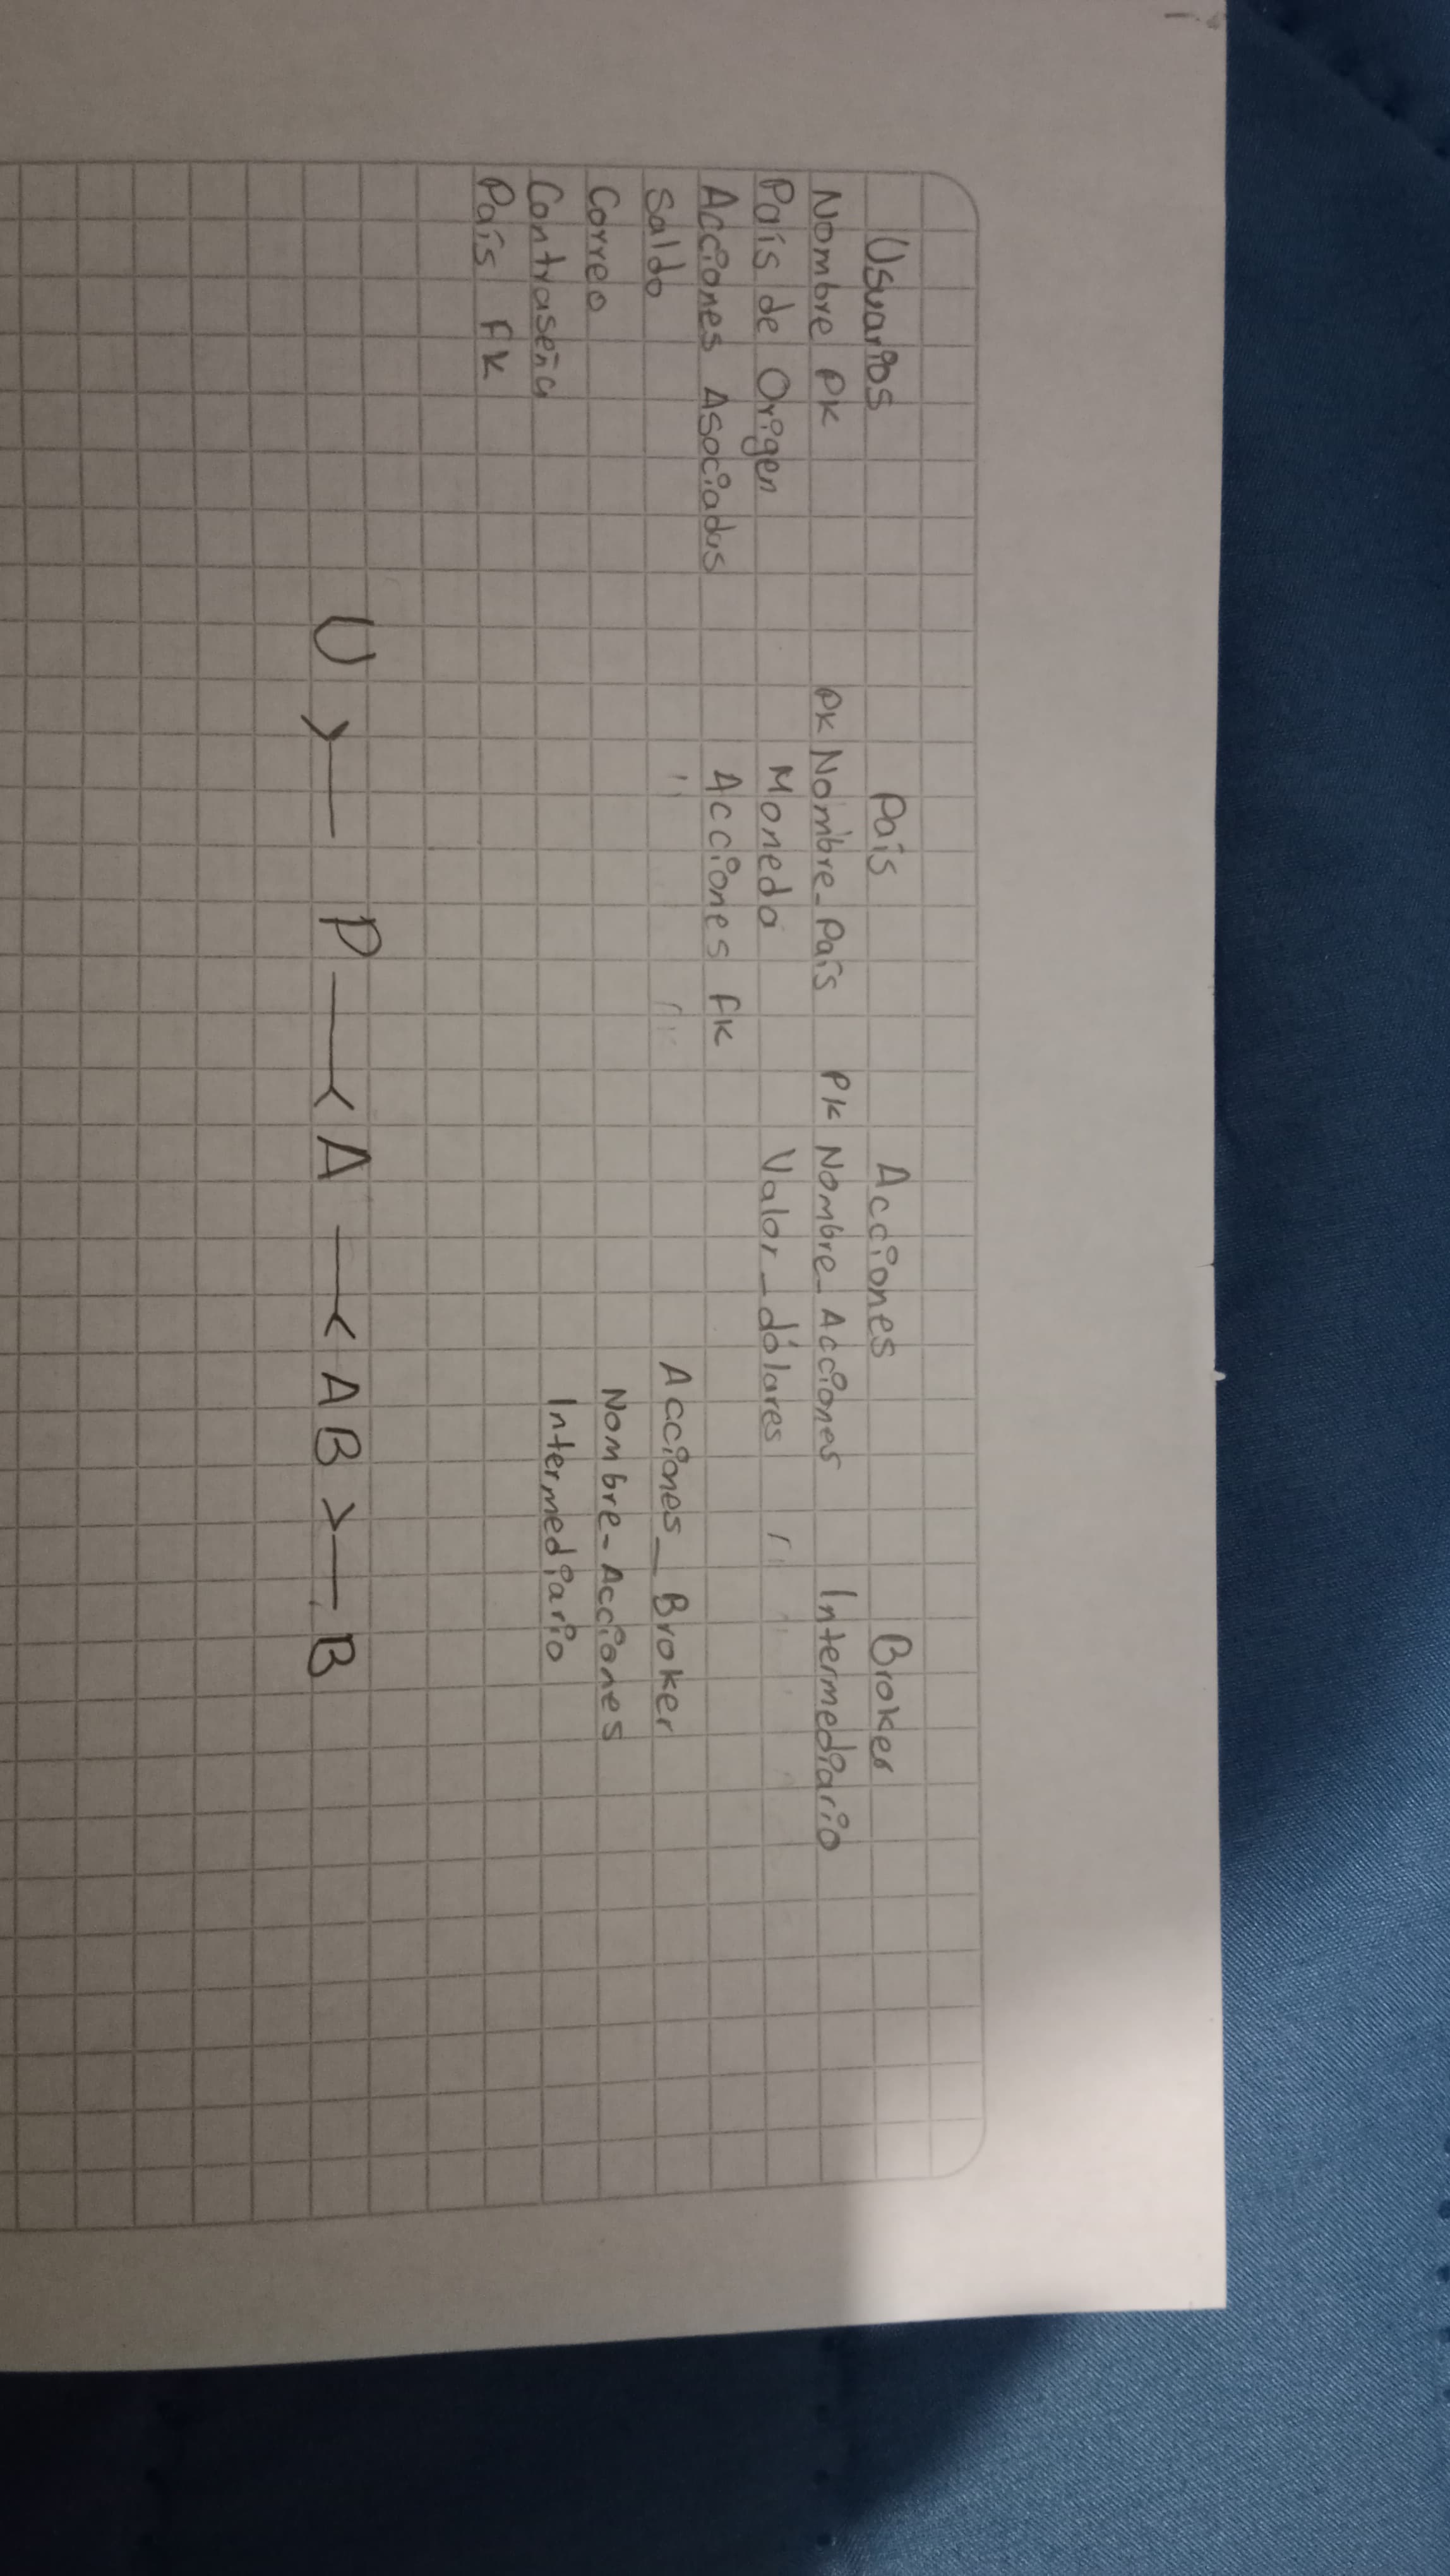 Usuarios
Nombre PK
País de Origen
Acciones Asociadas
Saldo
Correo
Contraseña
País FK
País
PK Nombre_País
Moneda
Acciones FK
Acciones
PK Nombre_Acciones
Valor_dólares
Broker
Intermediario
Acciones_Broker
Nombre-Acciones
Intermediario
U >— P —< A —< AB >— B